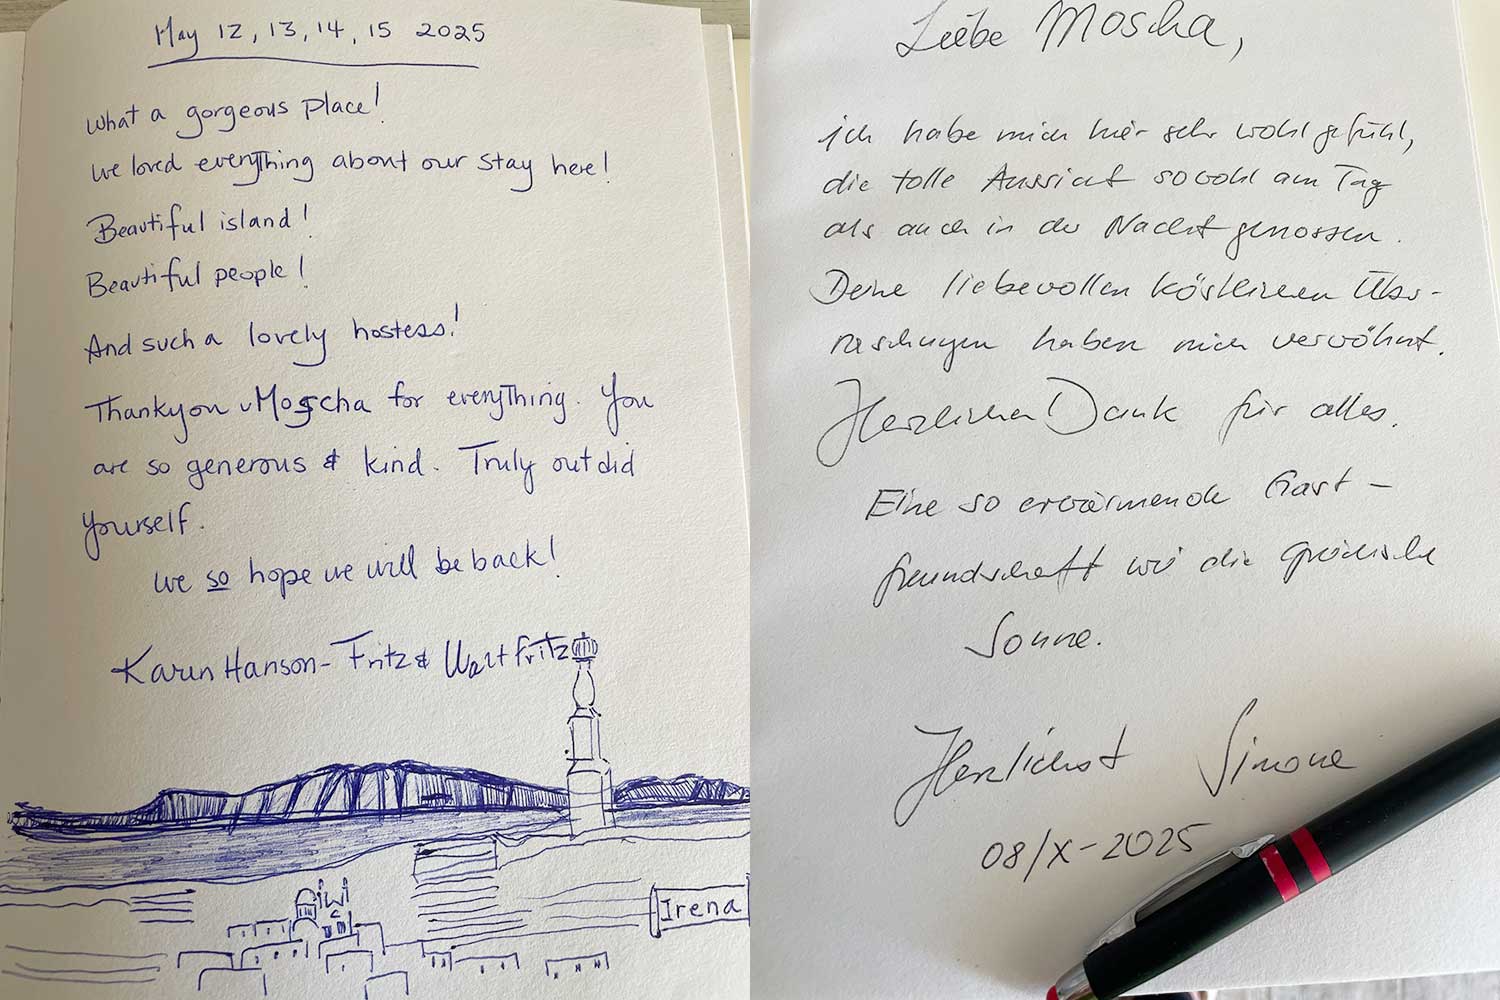 May 12, 13, 14, 15 2025
What a gorgeous place!
We loved everything about our stay here!
Beautiful island!
Beautiful people!
And such a lovely hostess!
Thankyou Moscha for everything. You
are so generous & kind. Truly out did
yourself.
We so hope we will be back!
Karin Hanson-Fritz & Walt Fritz
Irena
Liebe Moscha,
ich habe mich hier sehr wohl gefühl,
die tolle Aussicht sowohl am Tag
als auch in der Nacht genossen.
Deine liebevollen köstlichen Über-
raschungen haben mich verwöhnt.
Herzlichen Dank für alles.
Eine so erwärmende Gast-
freundschaft wie die griechische
Sonne.
Herzlichst Simone
08/X-2025